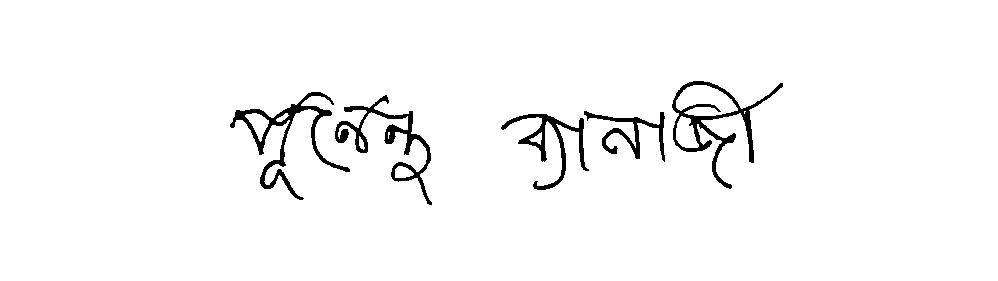 পূর্ণেন্দু ব্যানার্জী